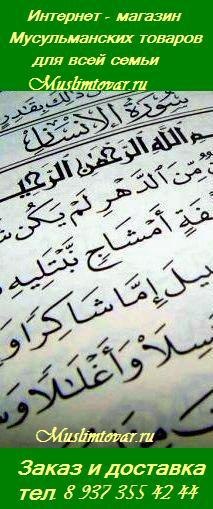 Интернет - магазин
Мусульманских товаров
для всей семьи
Muslimtovar.ru
سُورَةُ الإِنسَانِ
ـمِ اللَّهِ الرَّحْمَٰنِ الرَّحِيمِ
مِّنَ الدَّهْرِ لَمْ يَكُن
أَمْشَاجٍ نَّبْتَلِيهِ
إِمَّا شَاكِرًا
وَأَغْلَالًا
Muslimtovar.ru
Заказ и доставка
тел 8 937 355 42 44